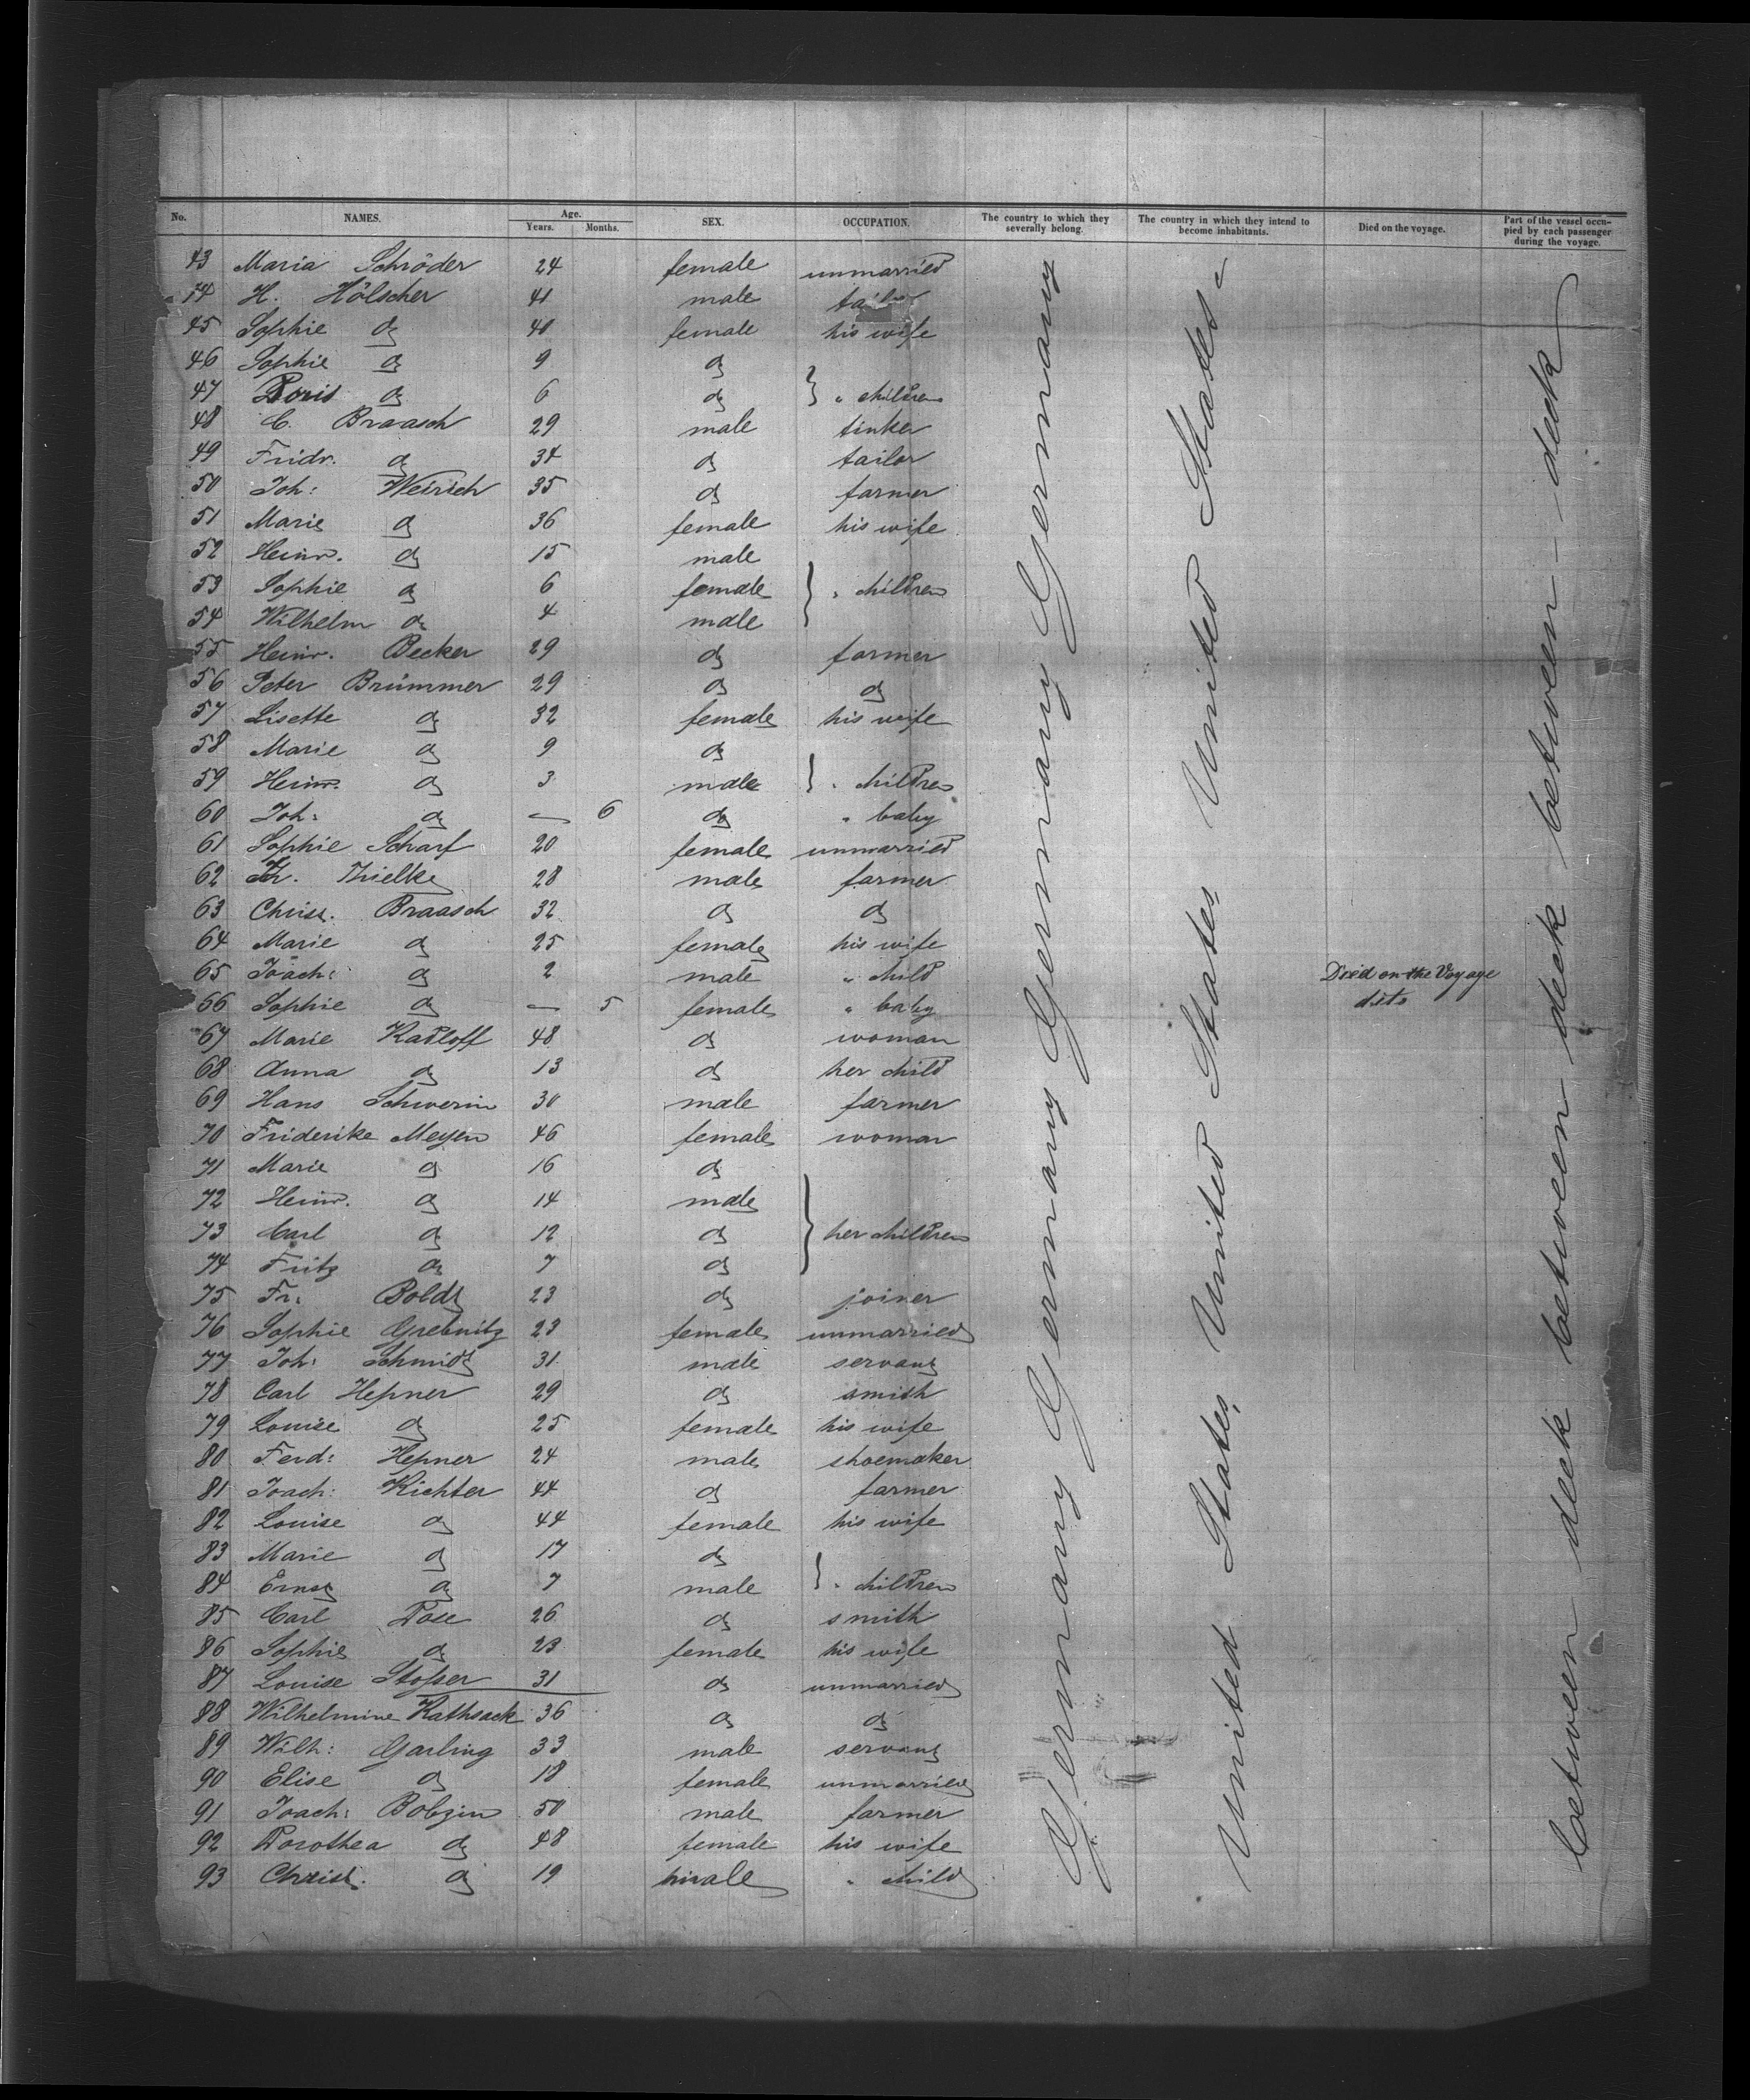 No. NAMES. Age. Years. Months. SEX. OCCUPATION. The country to which they severally belong. The country in which they intend to become inhabitants. Died on the voyage. Part of the vessel occupied by each passenger during the voyage.
43 Maria Schröder 24 female unmarried
44 H. Hölscher 41 male tailor
45 Sophie do 40 female his wife
46 Sophie do 9 do
47 Doris do 6 do } " children
48 C. Braasch 29 male tinker
49 Fridr. do 34 do tailor
50 Joh: Weirich 35 do farmer
51 Marie do 36 female his wife
52 Heinr. do 15 male
53 Sophie do 6 female } " children
54 Wilhelm do 4 male
55 Heinr. Becker 29 do farmer
56 Peter Brümmer 29 do do
57 Lisette do 32 female his wife
58 Marie do 9 do
59 Heinr. do 3 male } " children
60 Joh: do — 6 do " baby
61 Sophie Scharf 20 female unmarried
62 Thielke 28 male farmer
63 Christ. Braasch 32 do do
64 Marie do 25 female his wife
65 Joach: do 2 male " child Died on the Voyage
66 Sophie do — 5 female " baby dito
67 Marie Kadloff 48 do woman
68 Anna do 13 do her child
69 Hans Schwerin 30 male farmer
70 Friderike Meyen 46 female woman
71 Marie do 16 do
72 Heinr. do 14 male
73 Carl do 12 do } her children
74 Fritz do 7 do
75 Fr: Boldt 23 do joiner
76 Sophie Grebnitz 23 female unmarried
77 Joh: Schmidt 31 male servant
78 Carl Hepner 29 do smith
79 Louise do 25 female his wife
80 Ferd: Hepner 24 male shoemaker
81 Joach: Richter 44 do farmer
82 Louise do 44 female his wife
83 Marie do 17 do
84 Ernst do 7 male } " children
85 Carl 26 do smith
86 Sophie do 23 female his wife
87 Louise Stosser 31 do unmarried
88 Wilhelmine Rathsack 36 do do
89 Wilh: Garling 33 male servant
90 Elise do 18 female unmarried
91 Joach: Bobzin 50 male farmer
92 Dorothea do 48 female his wife
93 Christ. do 19 male " child
Germany Germany Germany Germany Germany
United States United States United States
between deck between deck between deck